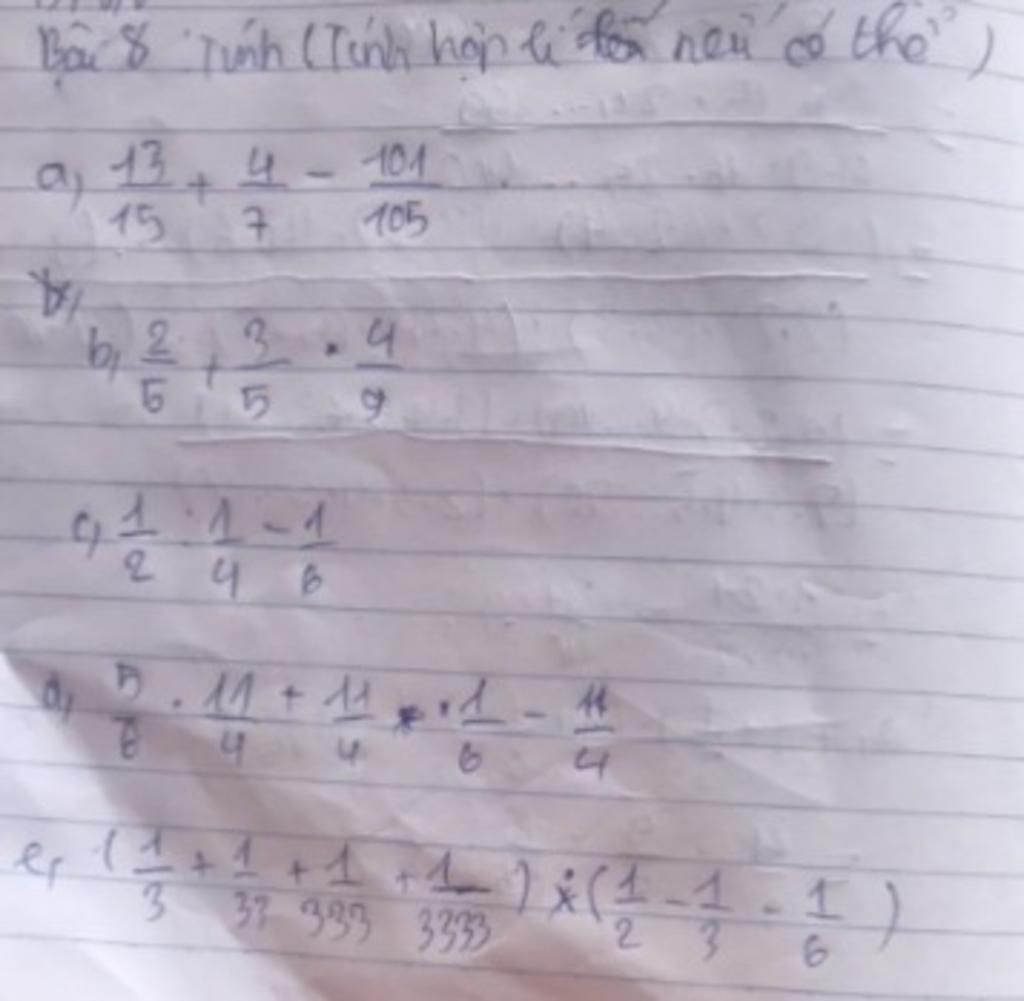 Bài 8 Tính (Tính hợp lí nếu có thể)
a, 13/15 + 4/7 - 101/105
b, 2/5 + 3/5 . 4/9
c, 1/2 : 1/4 - 1/6
d, 5/6 . 11/4 + 11/4 . 1/6 - 11/4
e, (1/3 + 1/33 + 1/333 + 1/3333) . (1/2 - 1/3 - 1/6)